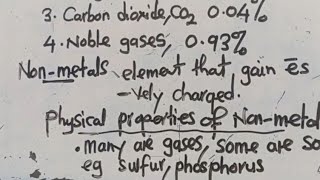 3. Carbon dioxide, CO2 0.04%
4. Noble gases, 0.93%
Non-metals element that gain ēs
-vely charged.
Physical properties of Non-metal
• many are gases, some are so
eg sulfur, phosphorus